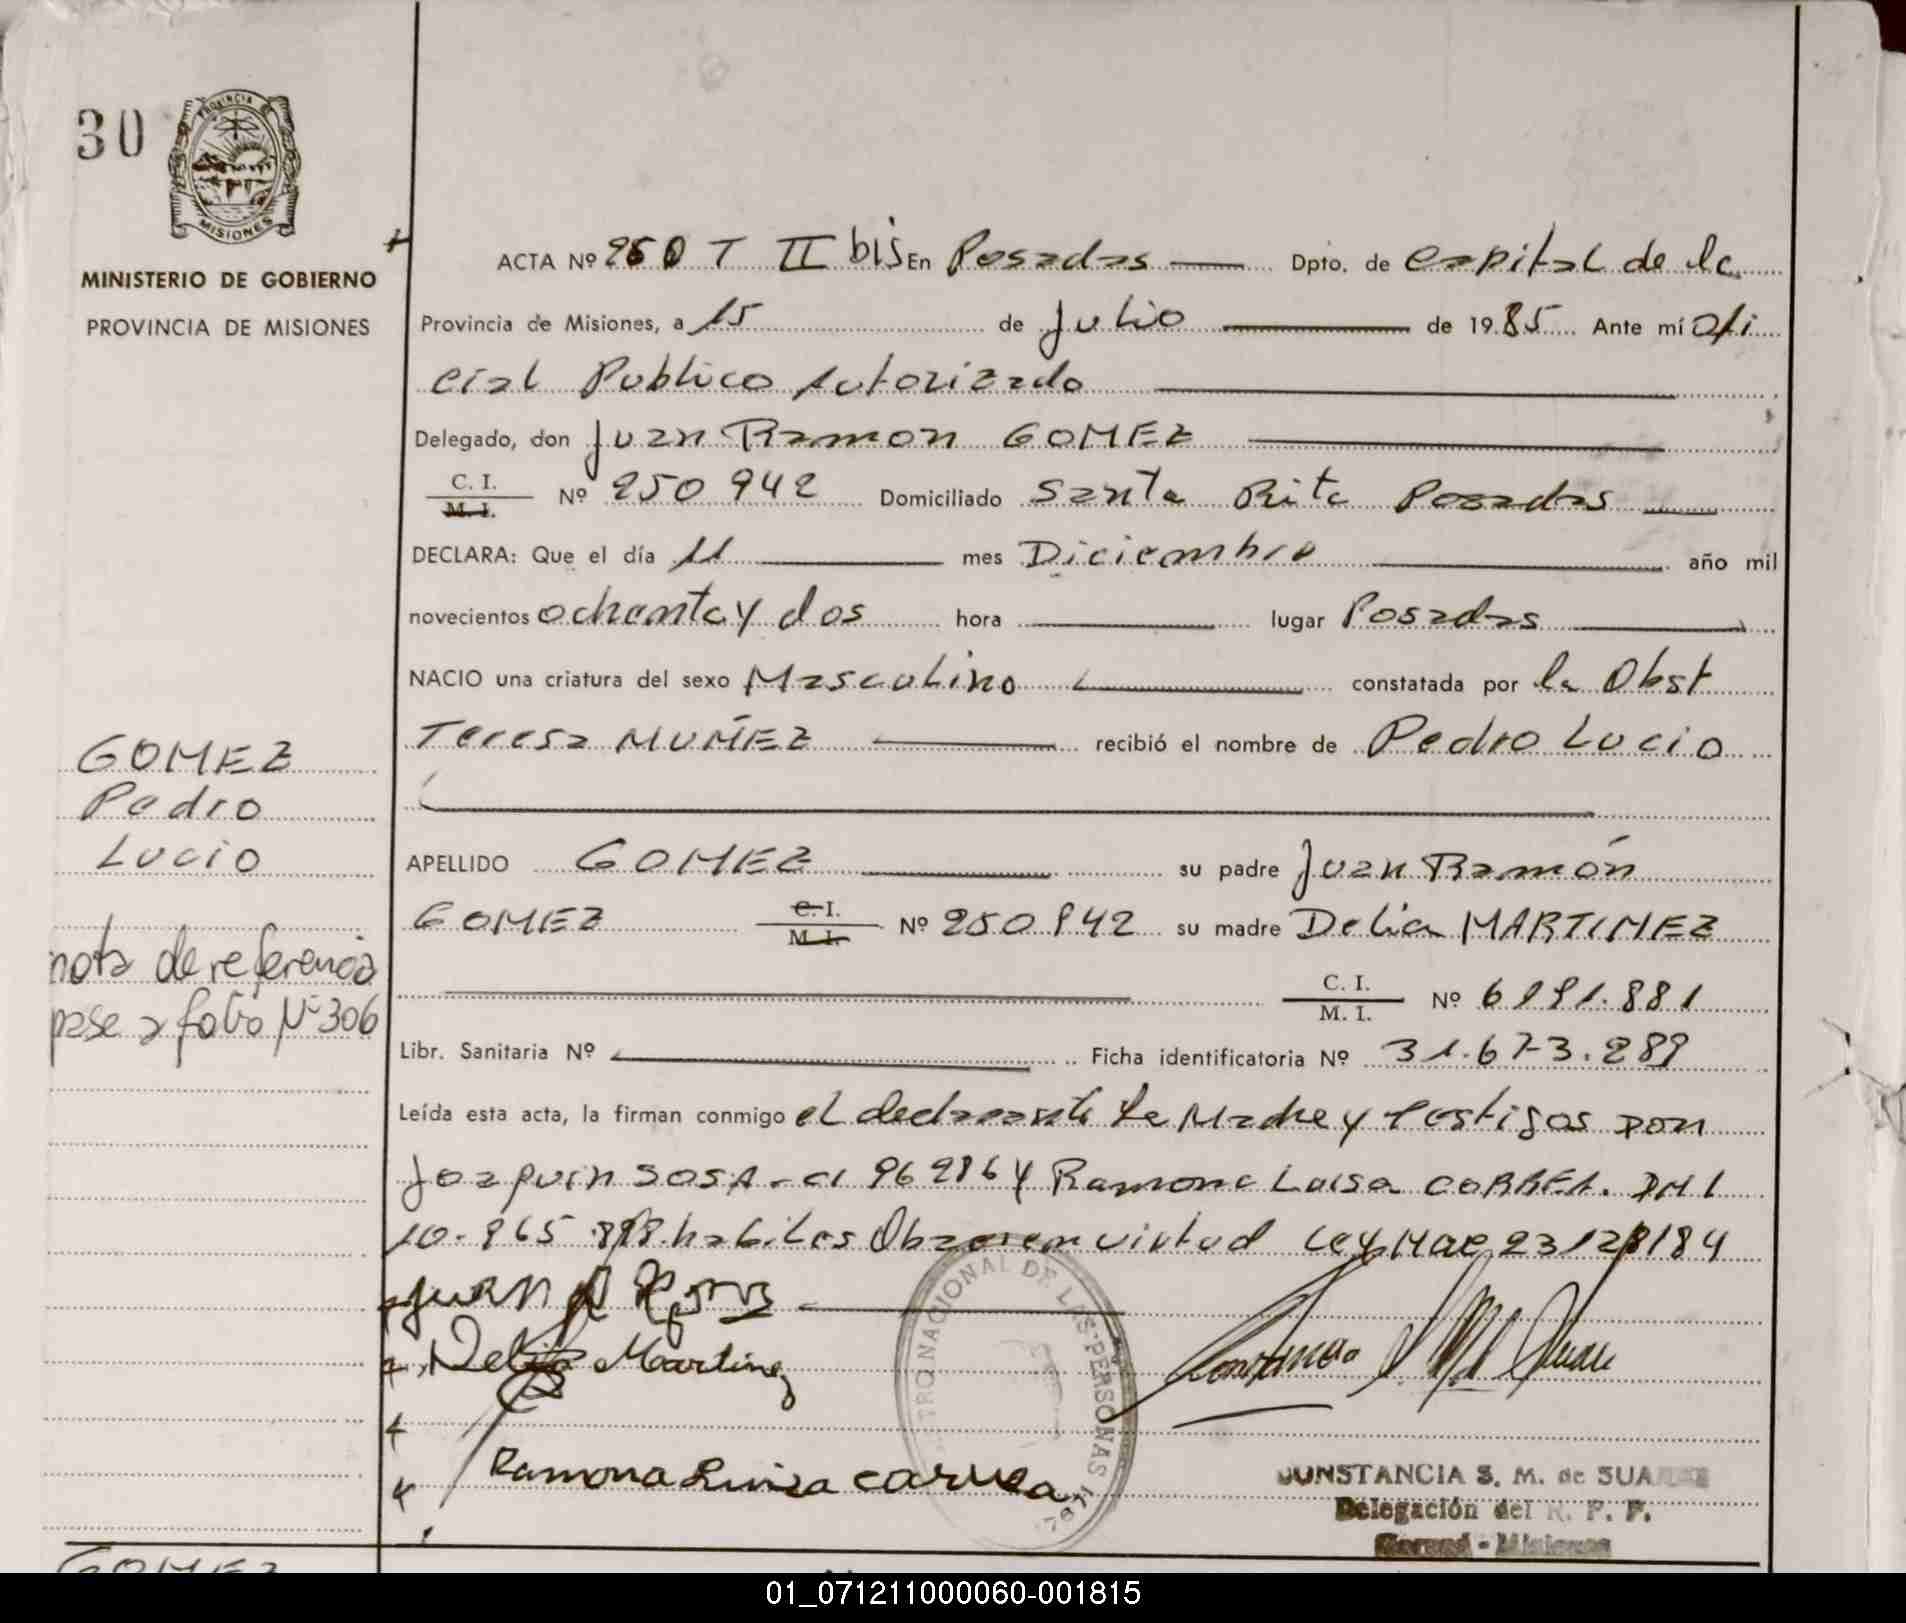 30
PROVINCIA DE
MISIONES
MINISTERIO DE GOBIERNO
PROVINCIA DE MISIONES
ACTA Nº 260 T II bis En Posadas Dpto. de capital de la
Provincia de Misiones, a 15 de Julio de 1985 Ante mí ofi
cial Publico Autorizado
Delegado, don Juan Ramon GOMEZ
C. I.
M. I.
Nº 250 942 Domiciliado Santa Rita Posadas
DECLARA: Que el día 11 mes Diciembre año mil
novecientos ochenta y dos hora lugar Posadas
NACIO una criatura del sexo Masculino constatada por la Obst
Teresa MUÑEZ recibió el nombre de Pedro Lucio
GOMEZ
Pedro
Lucio
APELLIDO GOMEZ su padre Juan Ramón
GOMEZ C. I. Nº 250 942 su madre Delia MARTINEZ
M. I.
nota de referencia
pase a folio Nº 306
C. I. Nº 6191.881
M. I.
Libr. Sanitaria Nº Ficha identificatoria Nº 31.673.289
Leída esta acta, la firman conmigo el declarante la Madre y testigos Don
Joaquin SOSA - CI 96 286 y Ramona Luisa CORREA. DNI
10.865 habiles en virtud Ley 23128/84
Juan R
Delia Martinez
Ramona Luisa Correa
REGISTRO NACIONAL DE LAS PERSONAS
CONSTANCIA S. M. de SUAREZ
Delegación del R. P. P.
Misiones
GOMEZ
01_071211000060-001815